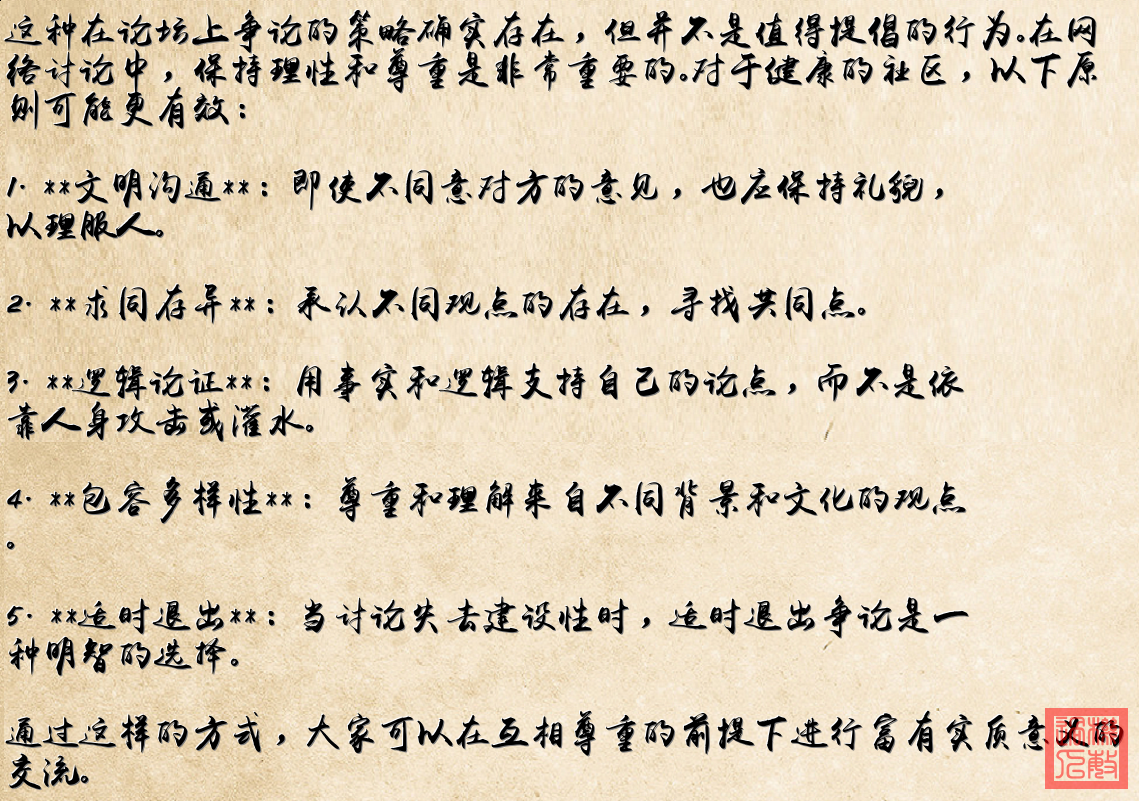 这种在论坛上争论的策略确实存在，但并不是值得提倡的行为。在网
络讨论中，保持理性和尊重是非常重要的。对于健康的社区，以下原
则可能更有效：
1. **文明沟通**：即使不同意对方的意见，也应保持礼貌，
以理服人。
2. **求同存异**：承认不同观点的存在，寻找共同点。
3. **逻辑论证**：用事实和逻辑支持自己的论点，而不是依
靠人身攻击或灌水。
4. **包容多样性**：尊重和理解来自不同背景和文化的观点
。
5. **适时退出**：当讨论失去建设性时，适时退出争论是一
种明智的选择。
通过这样的方式，大家可以在互相尊重的前提下进行富有实质意义的
交流。